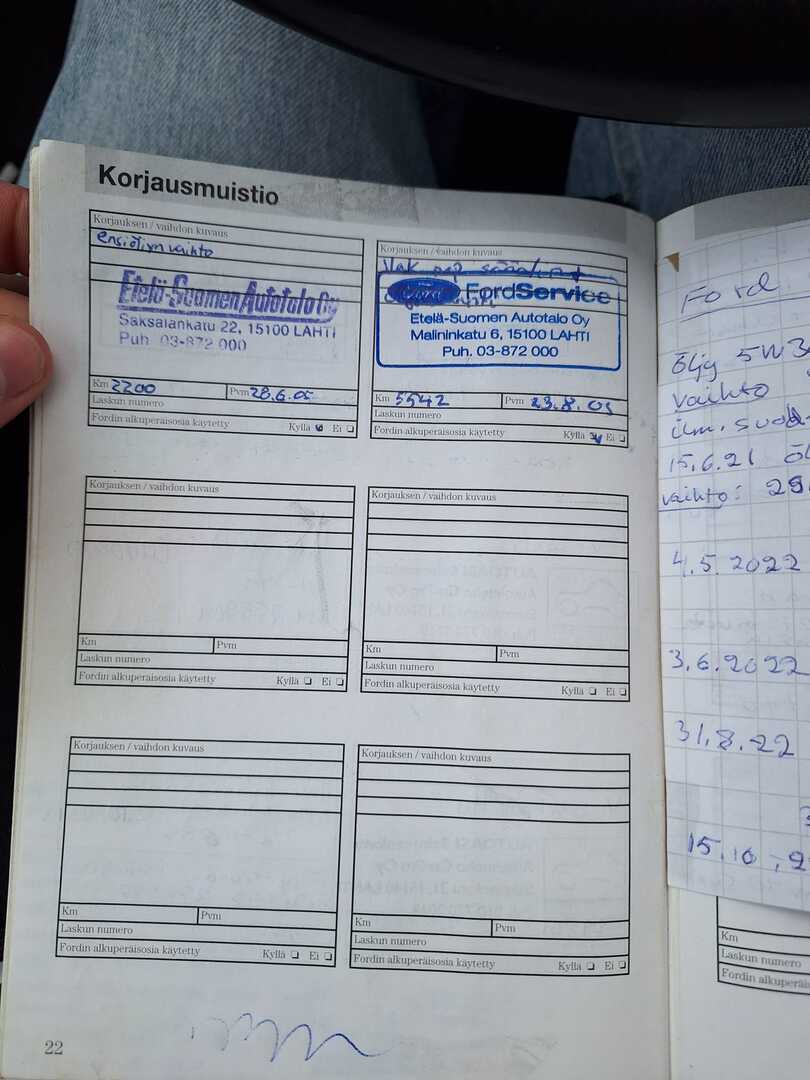 Korjausmuistio
Korjauksen / vaihdon kuvaus
ensiöljyn vaihto
Etelä-Suomen Autotalo Oy
Saksalankatu 22, 15100 LAHTI
Puh. 03-872 000
Km 2200 Pvm 28.6.05
Laskun numero
Fordin alkuperäisosia käytetty Kyllä Ei
Korjauksen / vaihdon kuvaus
Vak
Ford FordService
Etelä-Suomen Autotalo Oy
Malininkatu 6, 15100 LAHTI
Puh. 03-872 000
Km 5542 Pvm 23.8.05
Laskun numero
Fordin alkuperäisosia käytetty Kyllä Ei
Korjauksen / vaihdon kuvaus
Km Pvm
Laskun numero
Fordin alkuperäisosia käytetty Kyllä Ei
Korjauksen / vaihdon kuvaus
Km Pvm
Laskun numero
Fordin alkuperäisosia käytetty Kyllä Ei
Korjauksen / vaihdon kuvaus
Km Pvm
Laskun numero
Fordin alkuperäisosia käytetty Kyllä Ei
Korjauksen / vaihdon kuvaus
Km Pvm
Laskun numero
Fordin alkuperäisosia käytetty Kyllä Ei
22
Ford
öljy 5W3
vaihto
ilm. suod
15.6.21 öl
vaihto: 29
4.5.2022
3.6.2022
31.8.22
15.10.
Km
Laskun numero
Fordin alkuperäis